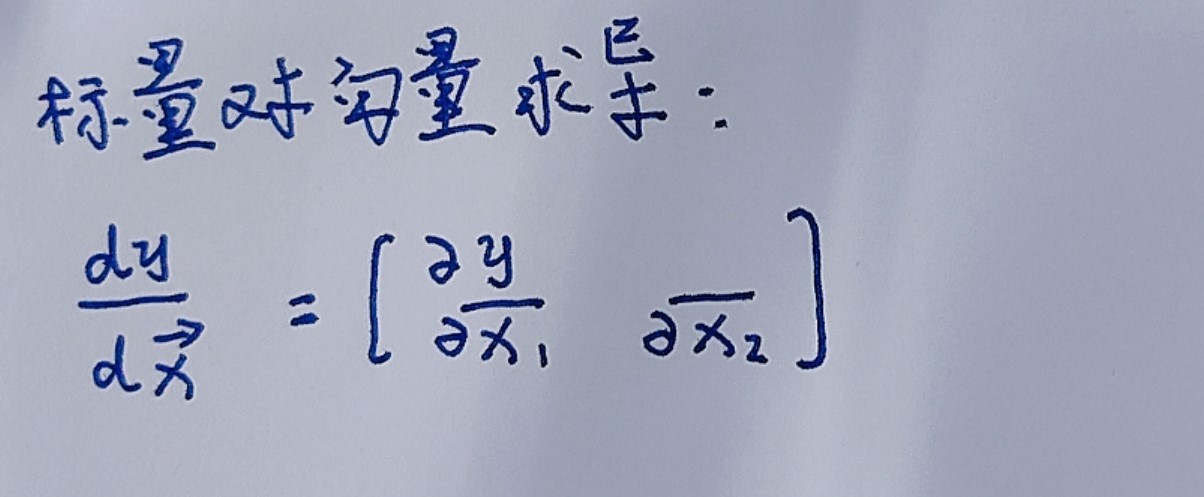 标量对向量求导:
dy/dx⃗ = [ ∂y/∂x₁  /∂x₂ ]